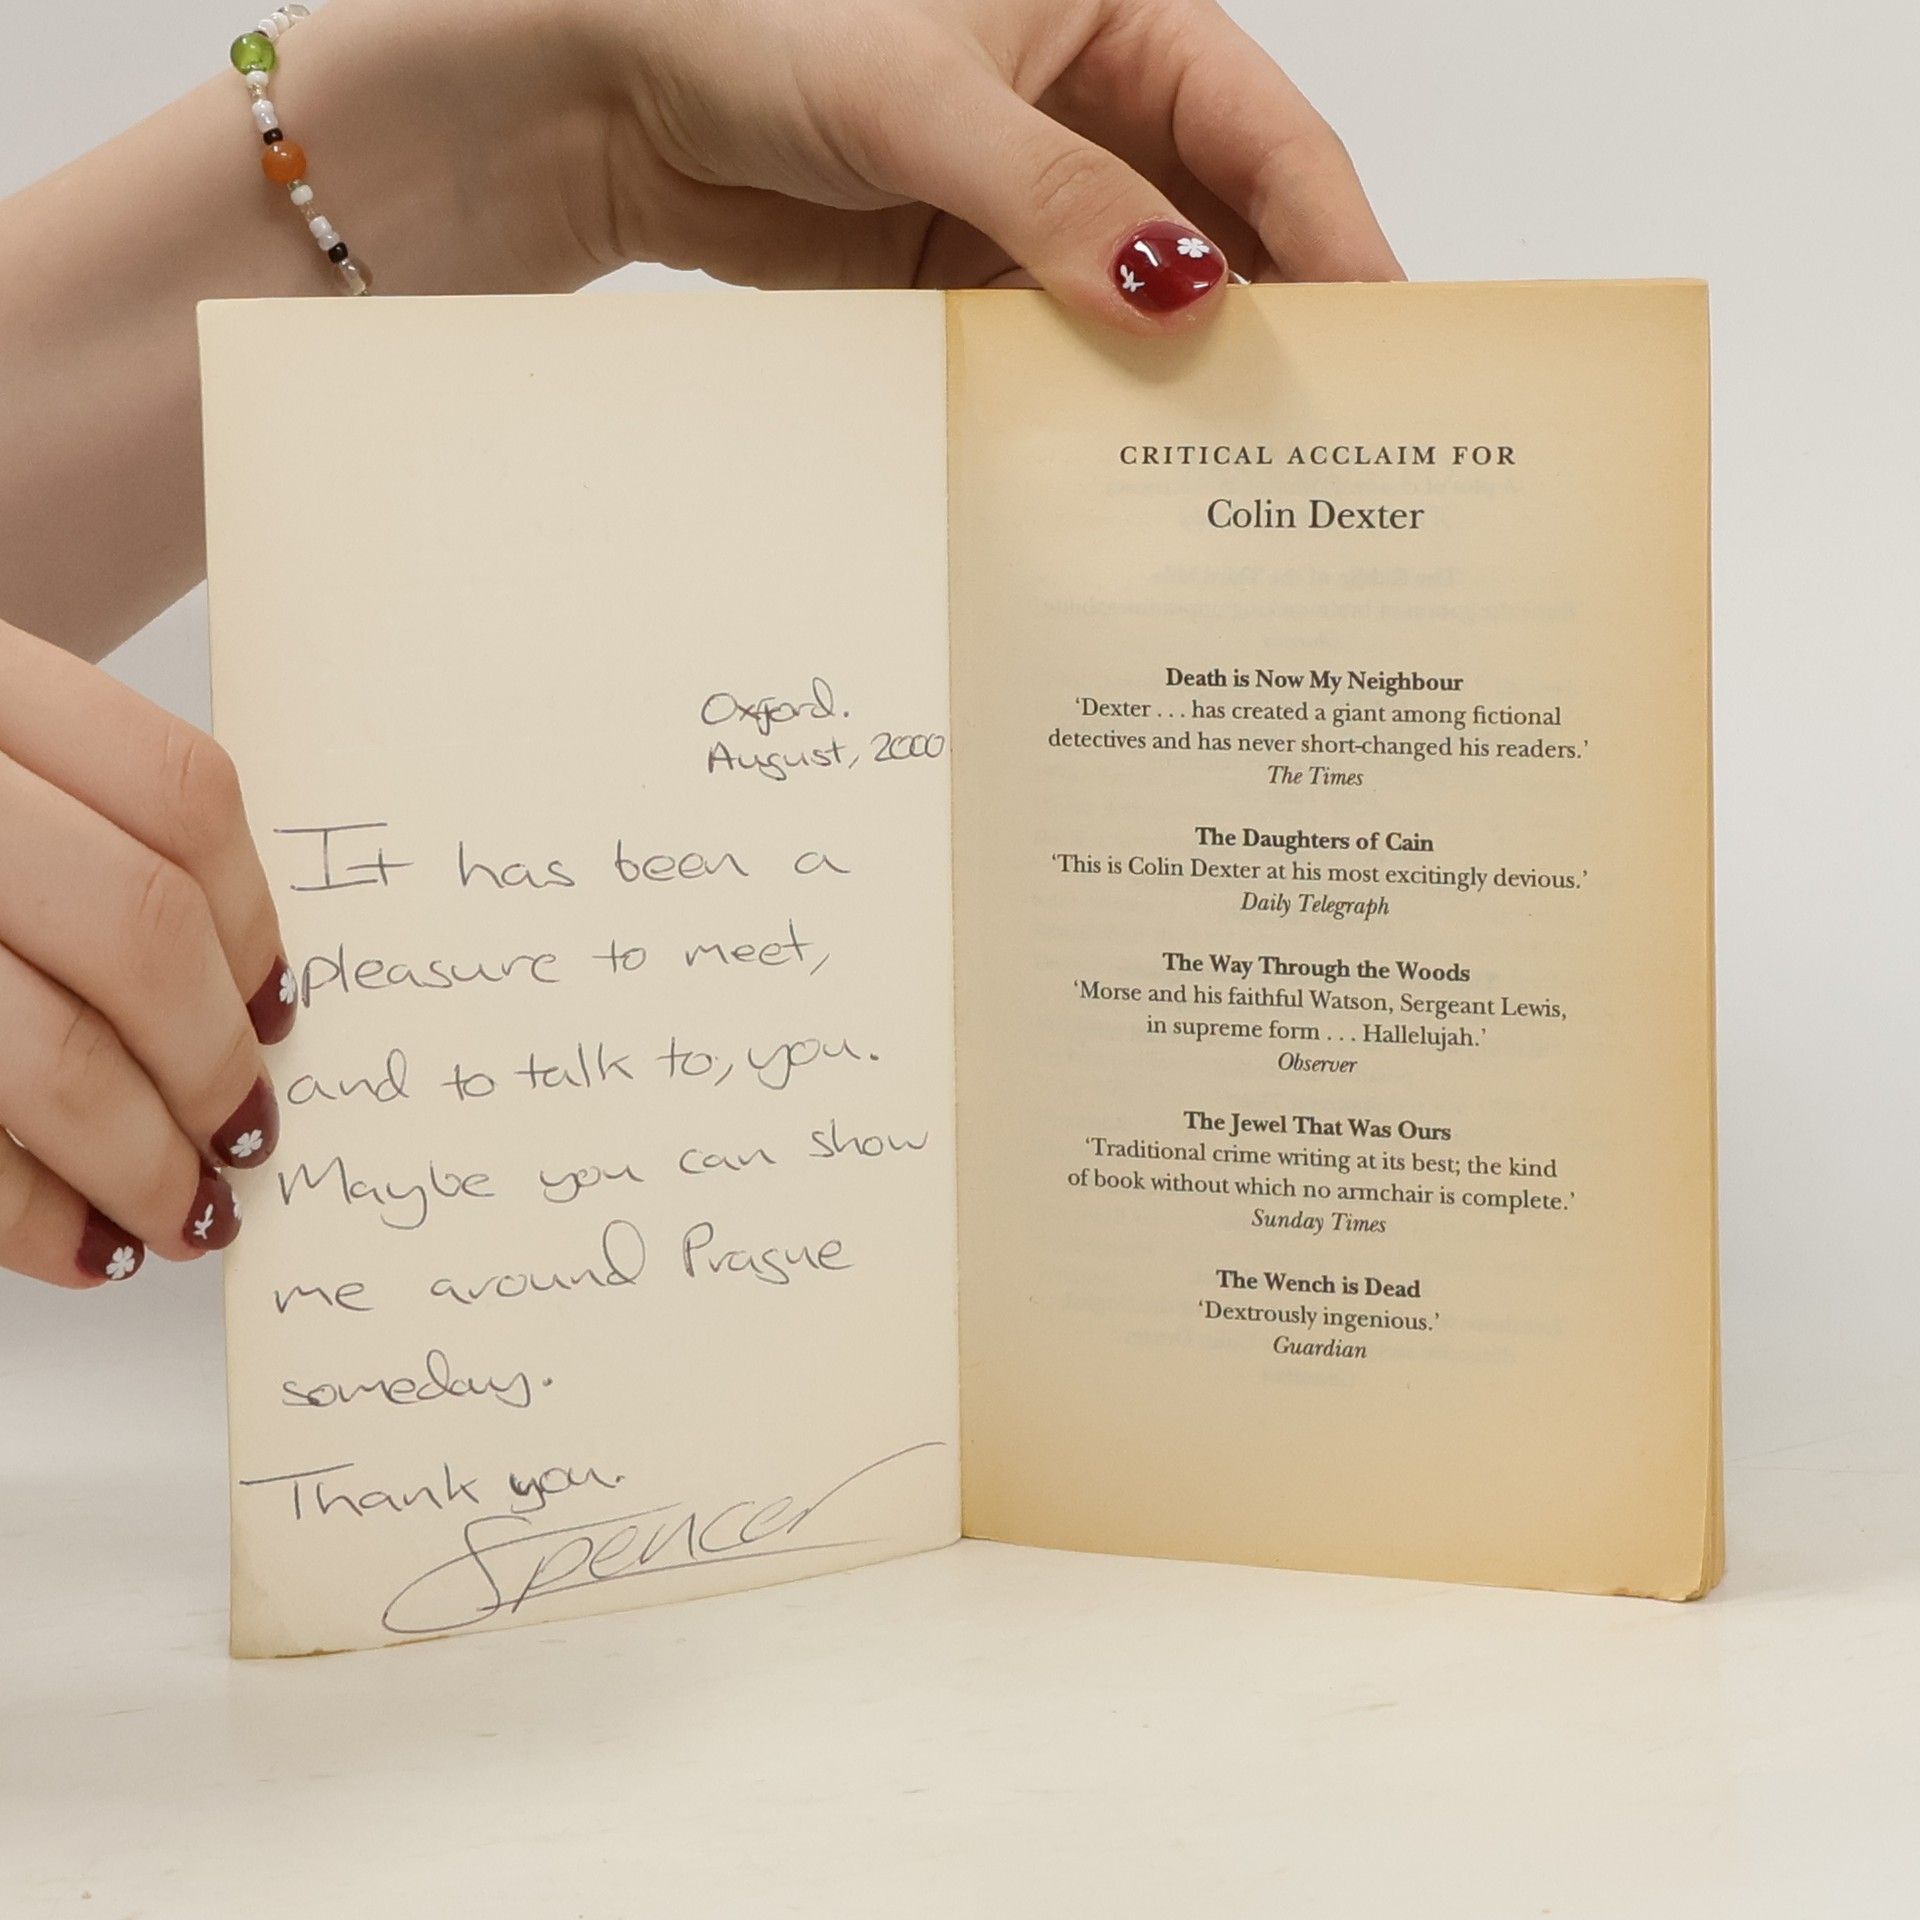 Oxford.
August, 2000
It has been a
pleasure to meet,
and to talk to, you.
Maybe you can show
me around Prague
someday.
Thank you.
Spencer
CRITICAL ACCLAIM FOR
Colin Dexter
Death is Now My Neighbour
‘Dexter . . . has created a giant among fictional
detectives and has never short-changed his readers.’
The Times
The Daughters of Cain
‘This is Colin Dexter at his most excitingly devious.’
Daily Telegraph
The Way Through the Woods
‘Morse and his faithful Watson, Sergeant Lewis,
in supreme form . . . Hallelujah.’
Observer
The Jewel That Was Ours
‘Traditional crime writing at its best; the kind
of book without which no armchair is complete.’
Sunday Times
The Wench is Dead
‘Dextrously ingenious.’
Guardian